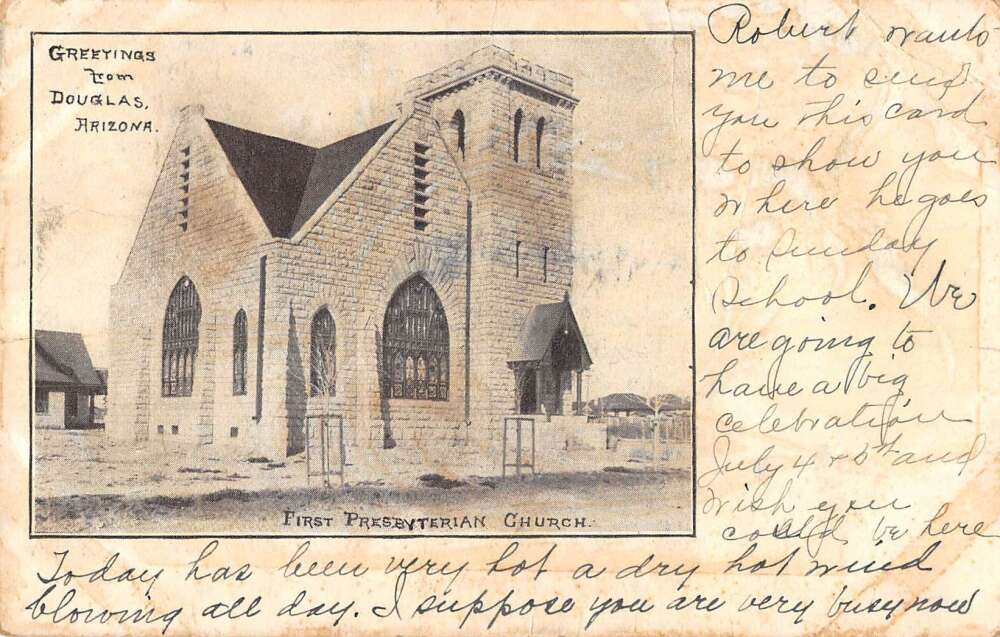 GREETINGS
from
DOUGLAS,
ARIZONA.
FIRST PRESBYTERIAN CHURCH.
Robert wants
me to send
you this card
to show you
where he goes
to Sunday
School. We
are going to
have a big
celebration
July 4 + 5th and
wish you
could be here
Today has been very hot a dry hot wind
blowing all day. I suppose you are very busy now